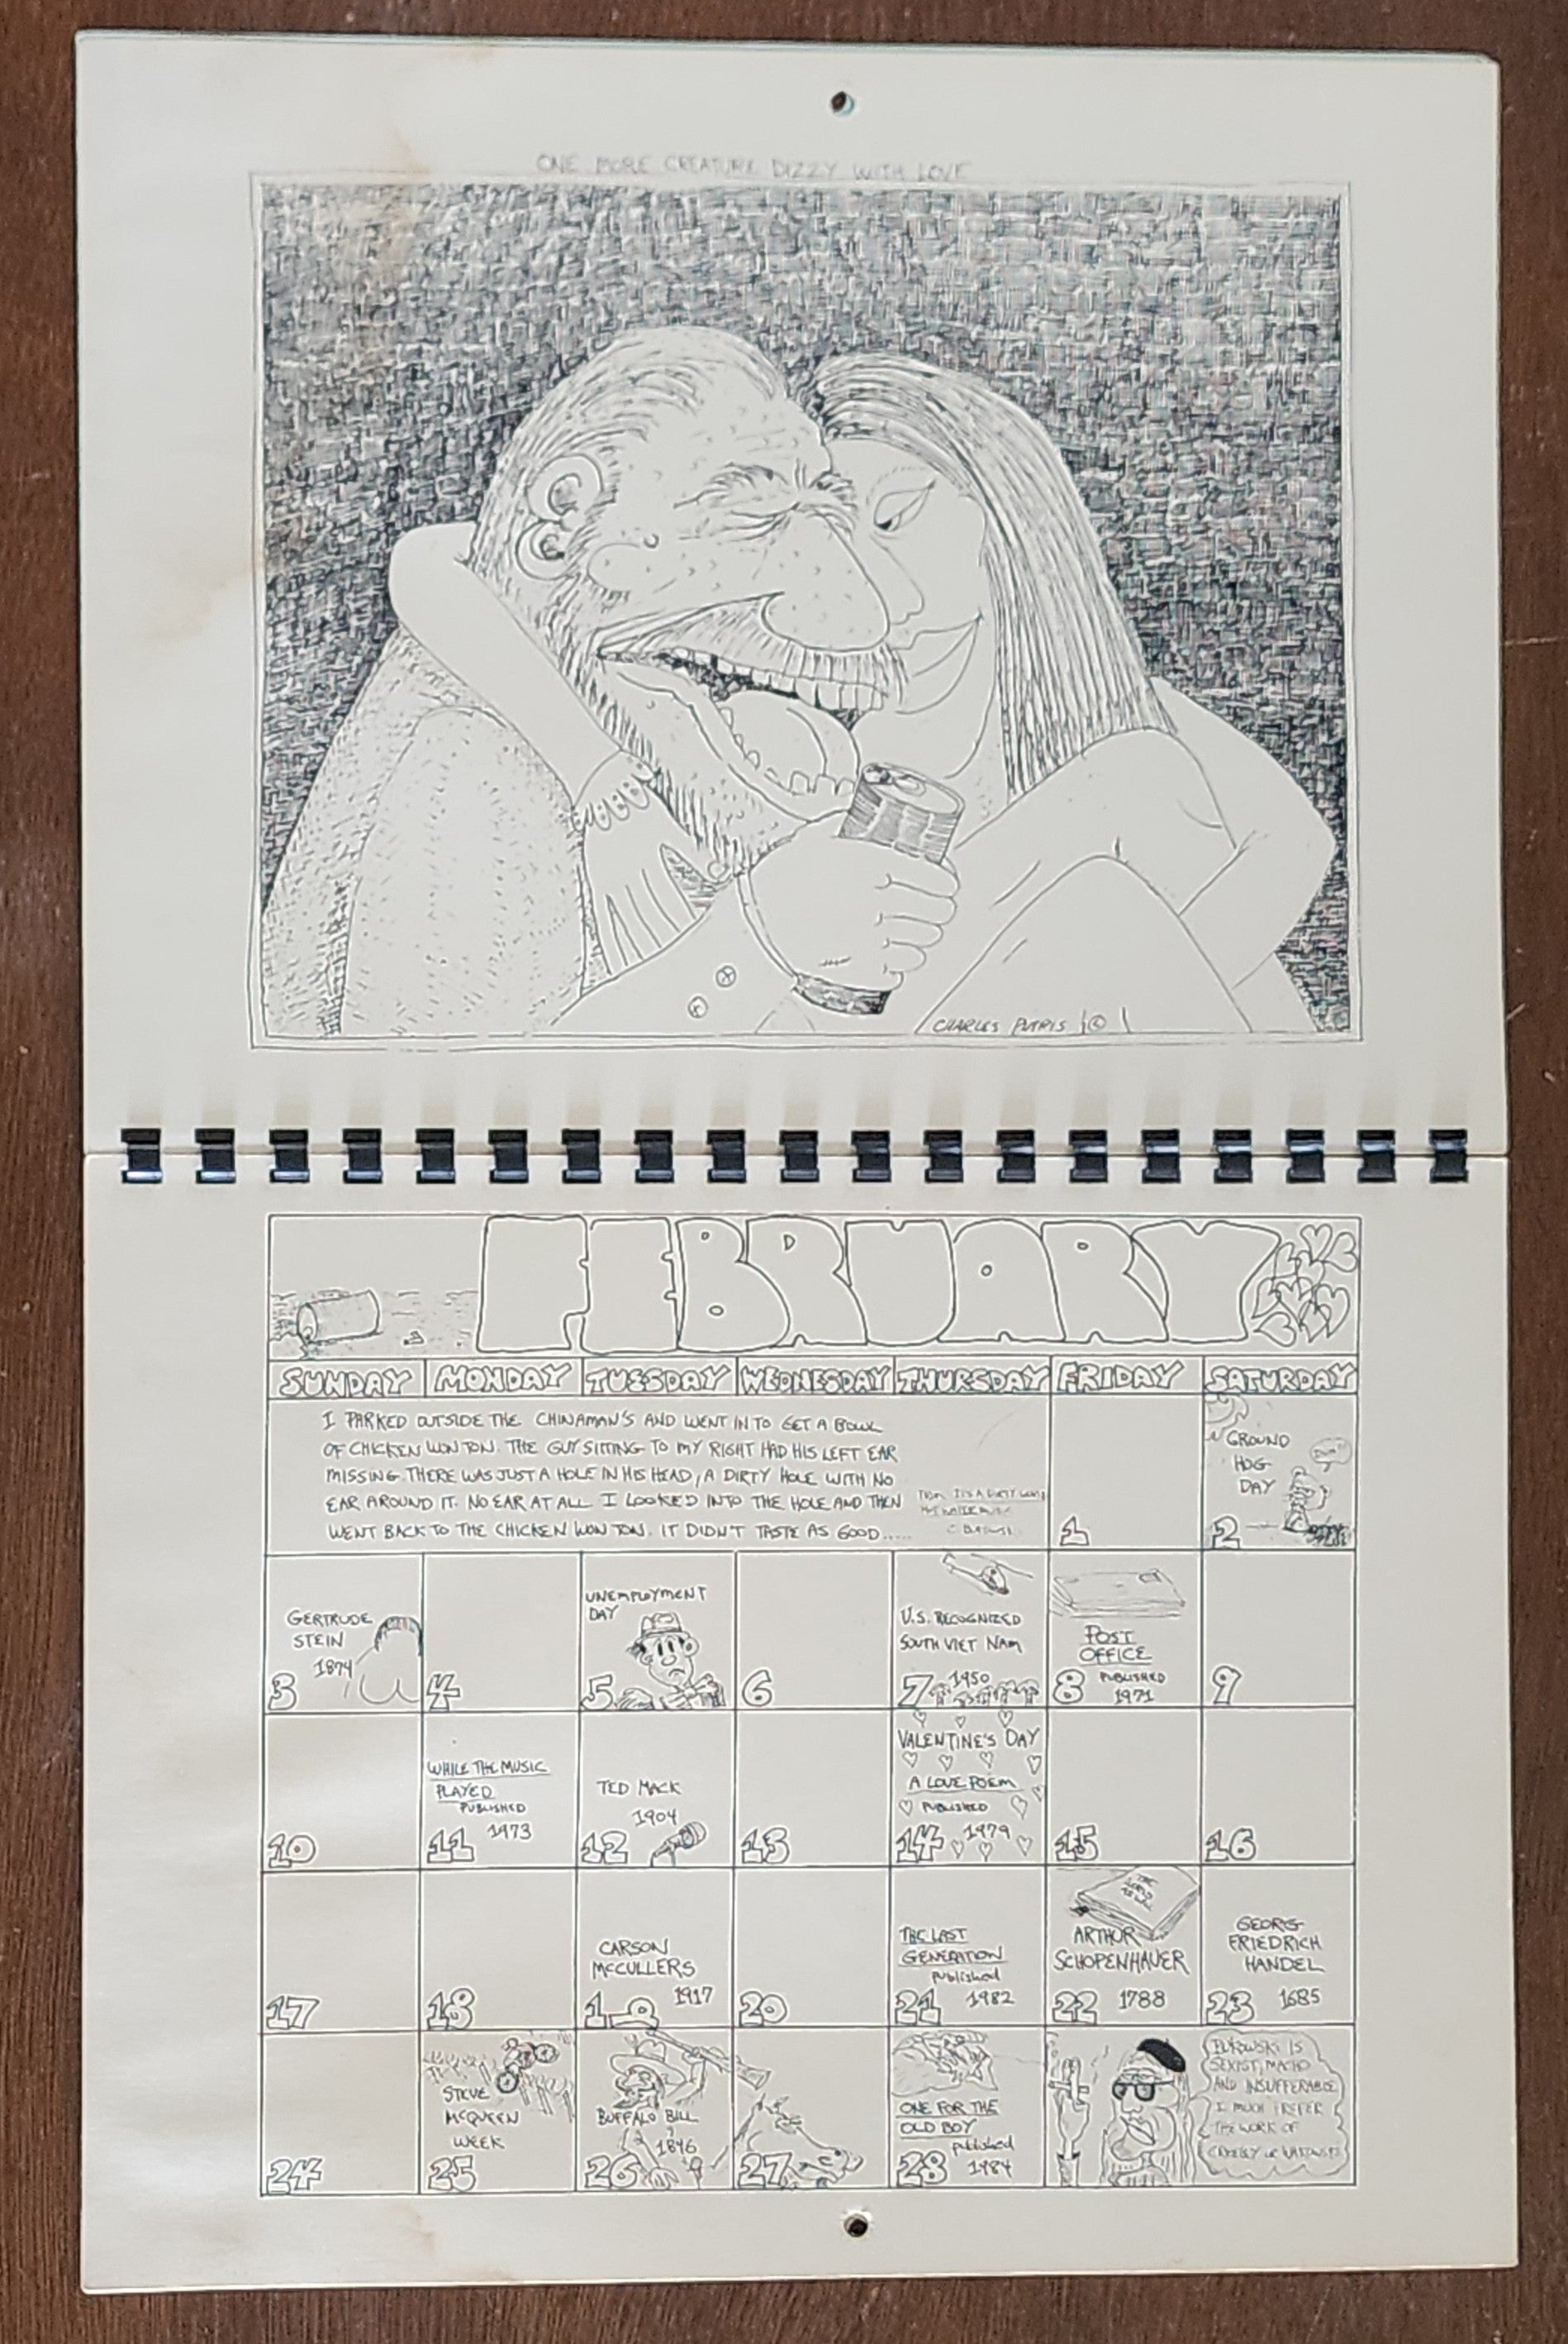 ONE MORE CREATURE DIZZY WITH LOVE
CHARLES PUTRIS ©
FEBRUARY
SUNDAY MONDAY TUESDAY WEDNESDAY THURSDAY FRIDAY SATURDAY
I PARKED OUTSIDE THE CHINAMAN'S AND WENT IN TO GET A BOWL
OF CHICKEN WON TON. THE GUY SITTING TO MY RIGHT HAD HIS LEFT EAR
MISSING. THERE WAS JUST A HOLE IN HIS HEAD, A DIRTY HOLE WITH NO
EAR AROUND IT. NO EAR AT ALL. I LOOKED INTO THE HOLE AND THEN
WENT BACK TO THE CHICKEN WON TON. IT DIDN'T TASTE AS GOOD.....
FROM IT'S A DIRTY
1
GROUND
HOG
DAY
2
GERTRUDE
STEIN
1874
3
4
UNEMPLOYMENT
DAY
5
6
U.S. RECOGNIZED
SOUTH VIET NAM
1950
7
POST
OFFICE
PUBLISHED
1971
8
9
10
WHILE THE MUSIC
PLAYED
PUBLISHED
1973
11
TED MACK
1904
12
13
VALENTINE'S DAY
A LOVE POEM
PUBLISHED
1979
14
15
16
17
18
CARSON
McCULLERS
1917
19
20
THE LAST
GENERATION
published
1982
21
THE
WORLD
AS WILL
ARTHUR
SCHOPENHAUER
1788
22
GEORG
FRIEDRICH
HANDEL
1685
23
24
STEVE
McQUEEN
WEEK
25
BUFFALO BILL
1846
26
27
ONE FOR THE
OLD BOY
published
1984
28
BUKOWSKI IS
SEXIST, MACHO
AND INSUFFERABLE
I MUCH PREFER
THE WORK OF
CREELEY or